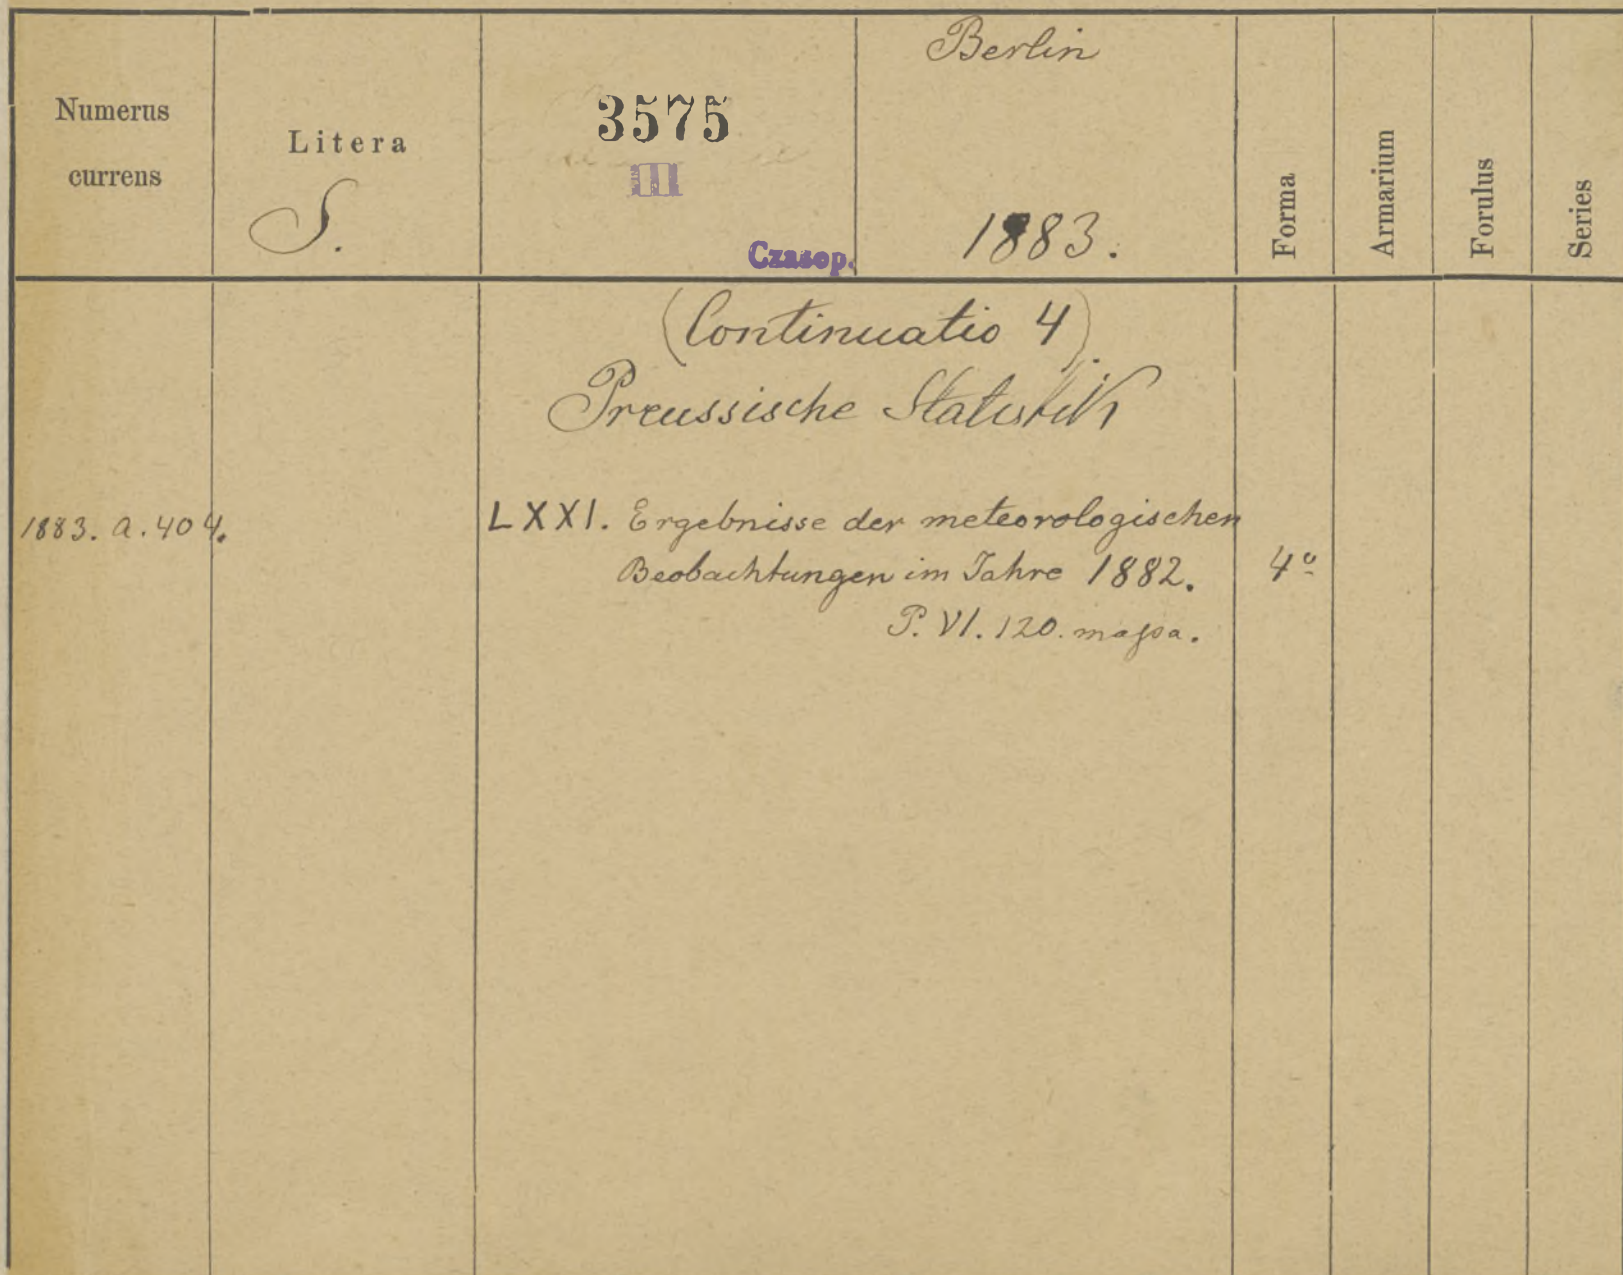 Numerus
currens
Litera
S.
3575
III
Czasop.
Berlin
1883.
Forma
Armarium
Forulus
Series
(Continuatio 4).
Preussische Statistik
1883. a. 404.
LXXI. Ergebnisse der meteorologischen
Beobachtungen im Jahre 1882.
4º
P. VI. 120. mappa.